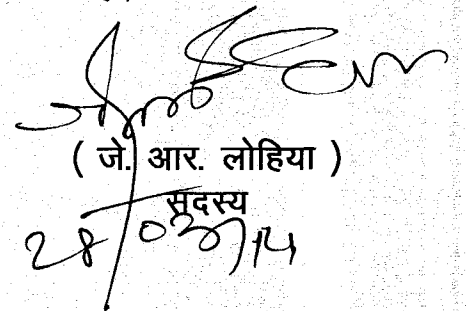 ( जे. आर. लोहिया )
सदस्य
28/02/14